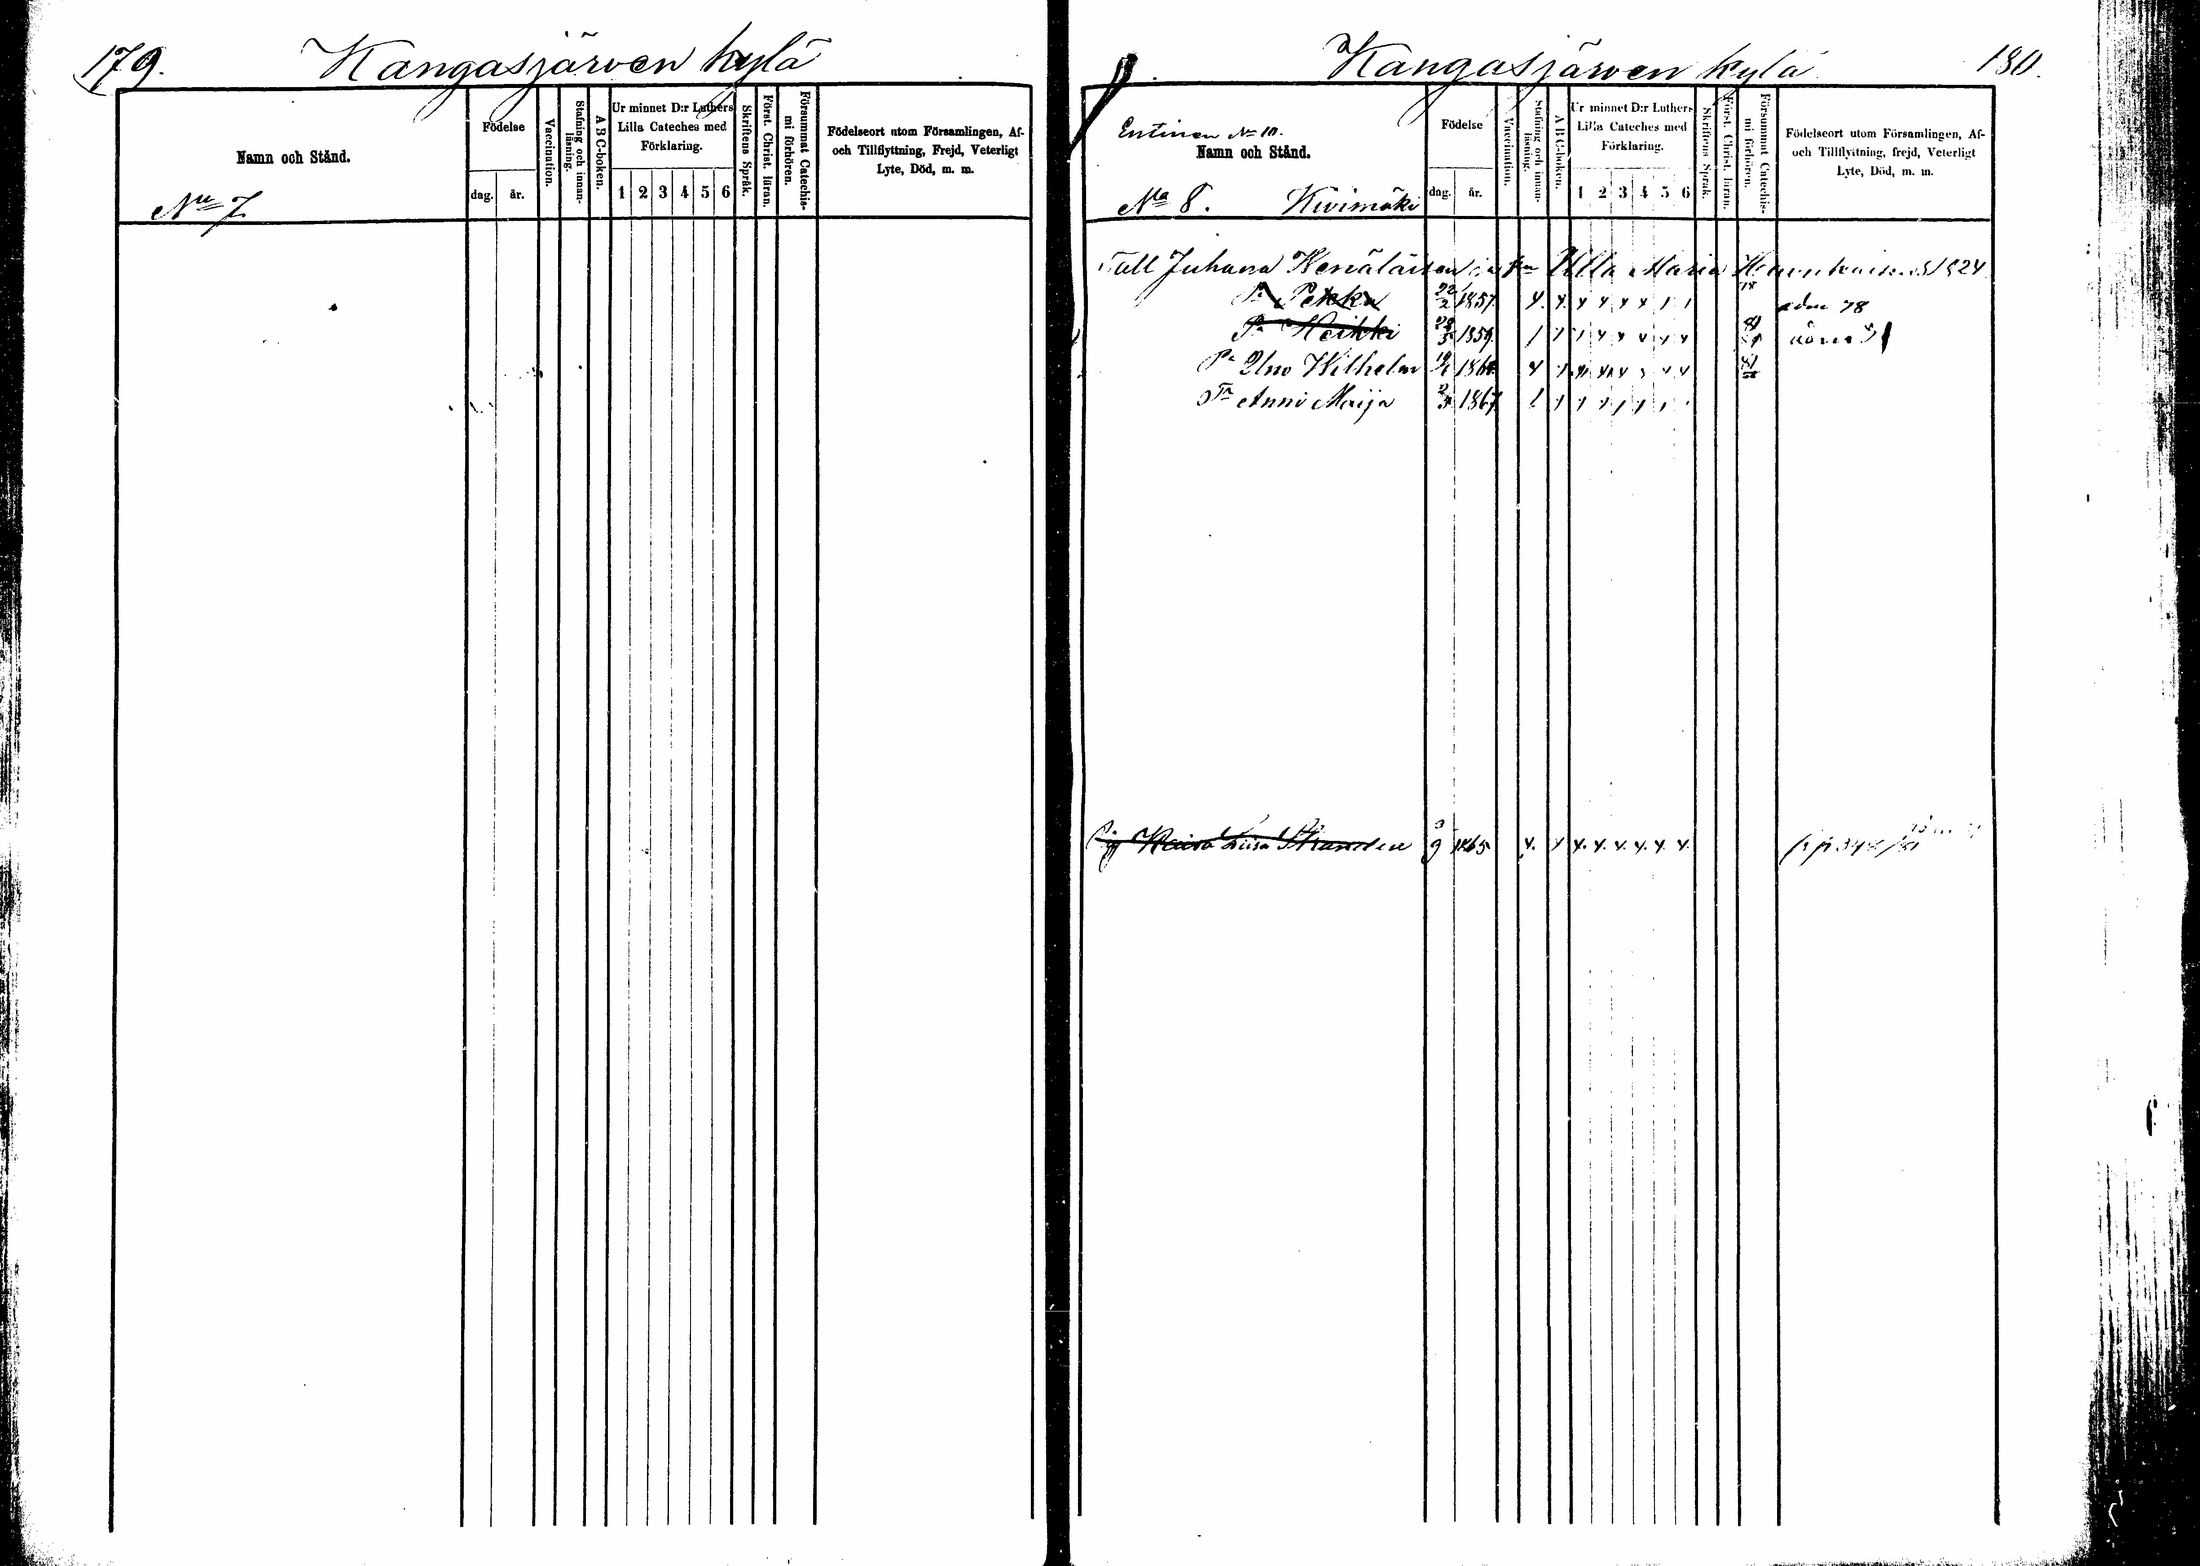 179. Kangasjärven kylä
Namn och Stånd.
No 7
Födelse
dag. år.
Vaccination.
Stafning och innan-läsning.
A B C-boken.
Ur minnet D:r Luthers
Lilla Cateches med
Förklaring.
1 2 3 4 5 6
Skriftens Språk.
Först. Christ. läran.
Försummat Catechis-mi förhören.
Födelseort utom Församlingen, Af-
och Tillflyttning, Frejd, Veterligt
Lyte, Död, m. m.
Kangasjärven kylä 180.
Entinen No 10.
Namn och Stånd.
No 8. Kivimäki
Födelse
dag. år.
Vaccination.
Stafning och innan-läsning.
A B C-boken.
Ur minnet D:r Luthers
Lilla Cateches med
Förklaring.
1 2 3 4 5 6
Skriftens Språk.
Först. Christ. läran.
Försummat Catechis-mi förhören.
Födelseort utom Församlingen, Af-
och Tillflyttning, frejd, Veterligt
Lyte, Död, m. m.
Juhana Venäläisen Ulla Maria 1824
Pa Pekka 22/2 1857 78
Pa Heikki 1859
Pa Uno Wilhelm 186
Tr Anni Maija 1867
Kaisa Liisa Stranden 9 1865